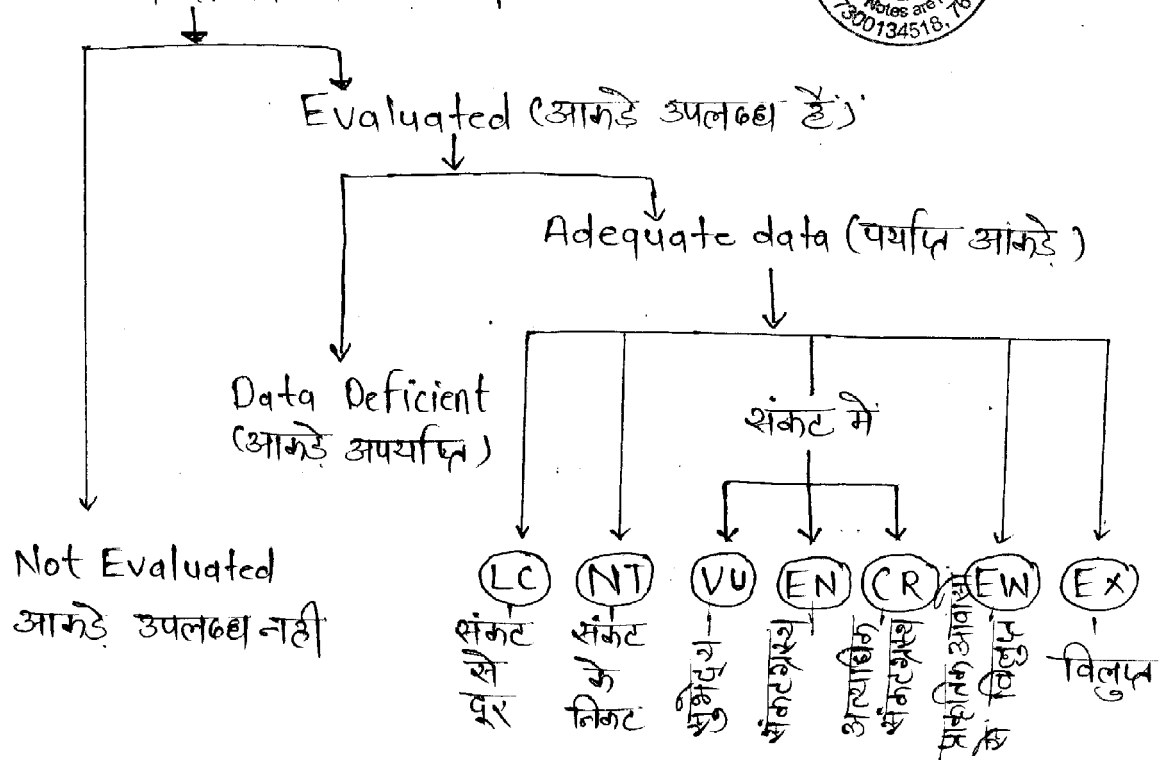 Notes are
7300134518, 76
Evaluated (आकड़े उपलब्ध हैं)
Adequate data (पर्याप्त आंकड़े)
Data Deficient
(आकड़े अपर्याप्त)
संकट में
Not Evaluated
आकड़े उपलब्ध नहीं
LC NT VU EN CR EW EX
संकट से दूर
संकट के निकट
सुभेद्य
संकटग्रस्थ
अत्याधिक संकटग्रस्थ
प्राकृतिक आवास विलुप्त
विलुप्त